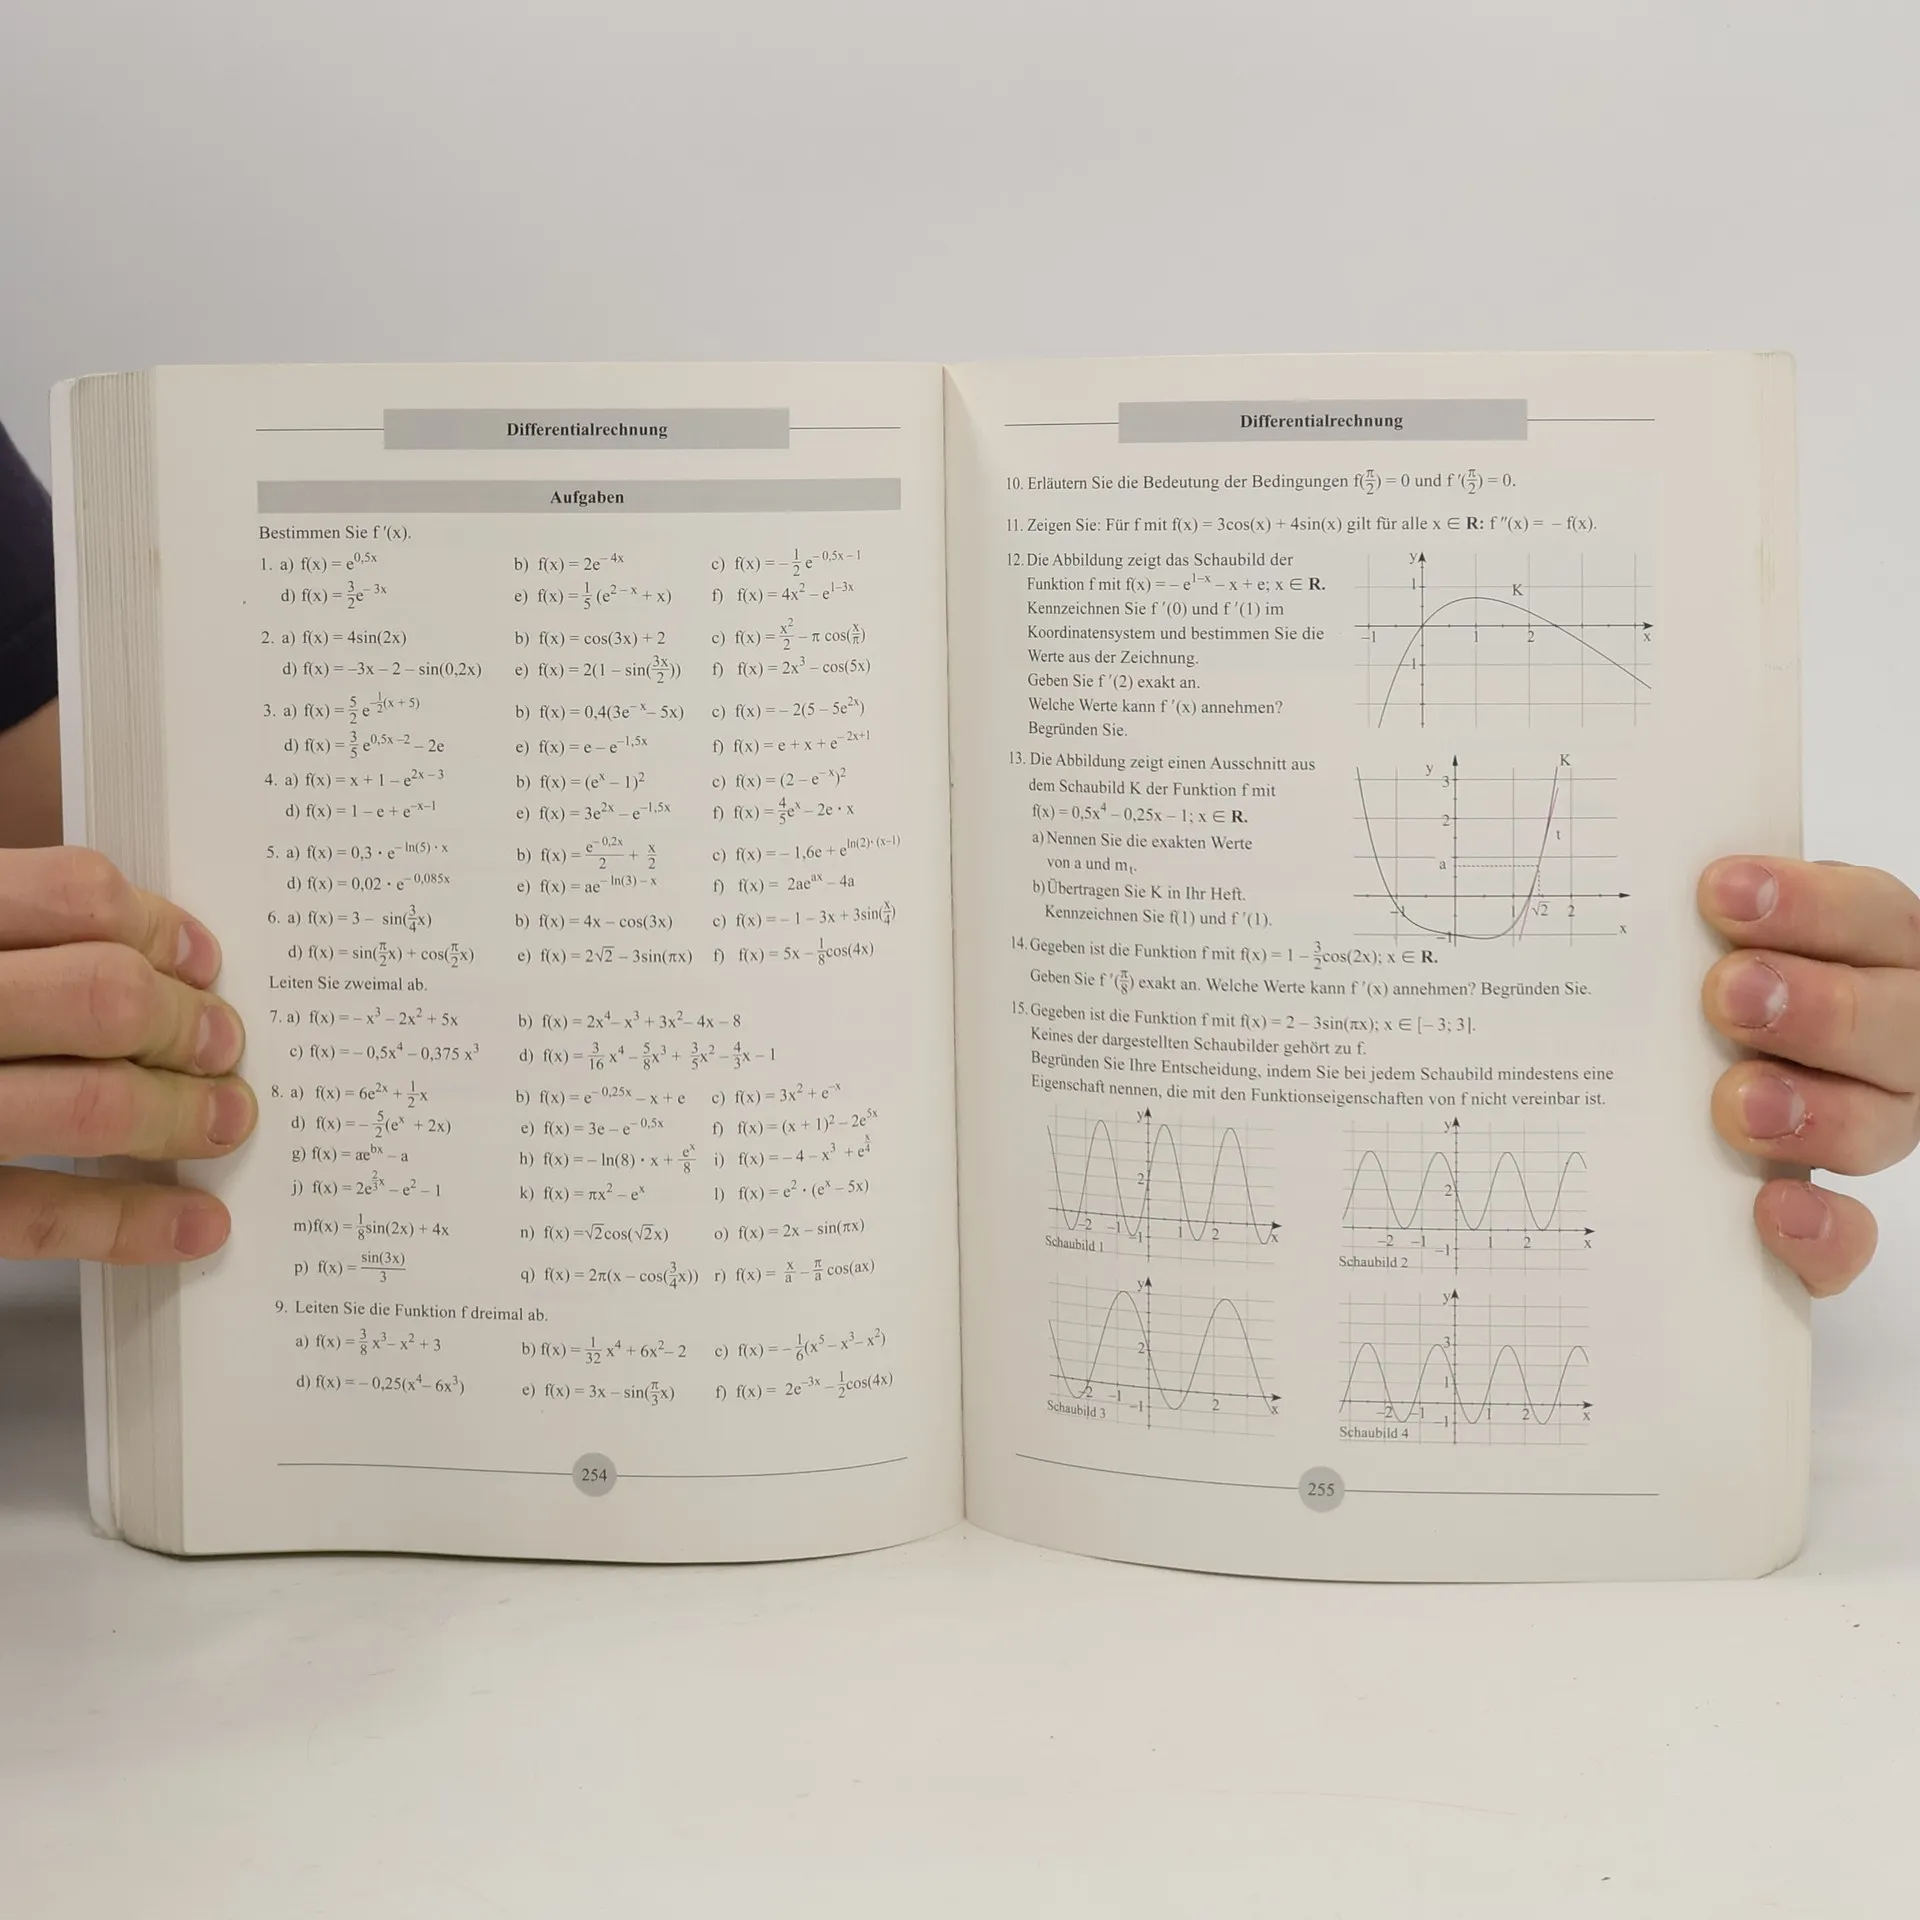 Differentialrechnung
Aufgaben
Bestimmen Sie f ′(x).
1. a) f(x) = e^{0,5x} b) f(x) = 2e^{– 4x} c) f(x) = – \frac{1}{2} e^{– 0,5x – 1}
d) f(x) = \frac{3}{2}e^{– 3x} e) f(x) = \frac{1}{5} (e^{2 – x} + x) f) f(x) = 4x² – e^{1–3x}
2. a) f(x) = 4sin(2x) b) f(x) = cos(3x) + 2 c) f(x) = \frac{x²}{2} – π cos(\frac{x}{π})
d) f(x) = –3x – 2 – sin(0,2x) e) f(x) = 2(1 – sin(\frac{3x}{2})) f) f(x) = 2x³ – cos(5x)
3. a) f(x) = \frac{5}{2} e^{–\frac{1}{2}(x + 5)} b) f(x) = 0,4(3e^{– x} – 5x) c) f(x) = – 2(5 – 5e^{2x})
d) f(x) = \frac{3}{5} e^{0,5x –2} – 2e e) f(x) = e – e^{–1,5x} f) f(x) = e + x + e^{– 2x+1}
4. a) f(x) = x + 1 – e^{2x – 3} b) f(x) = (e^x – 1)² c) f(x) = (2 – e^{– x})²
d) f(x) = 1 – e + e^{–x–1} e) f(x) = 3e^{2x} – e^{–1,5x} f) f(x) = \frac{4}{5}e^x – 2e · x
5. a) f(x) = 0,3 · e^{– ln(5) · x} b) f(x) = \frac{e^{– 0,2x}}{2} + \frac{x}{2} c) f(x) = – 1,6e + e^{ln(2)· (x–1)}
d) f(x) = 0,02 · e^{– 0,085x} e) f(x) = ae^{– ln(3) – x} f) f(x) = 2ae^{ax} – 4a
6. a) f(x) = 3 – sin(\frac{3}{4}x) b) f(x) = 4x – cos(3x) c) f(x) = – 1 – 3x + 3sin(\frac{x}{4})
d) f(x) = sin(\frac{π}{2}x) + cos(\frac{π}{2}x) e) f(x) = 2√2 – 3sin(πx) f) f(x) = 5x – \frac{1}{8}cos(4x)
Leiten Sie zweimal ab.
7. a) f(x) = – x³ – 2x² + 5x b) f(x) = 2x⁴– x³ + 3x²– 4x – 8
c) f(x) = – 0,5x⁴ – 0,375 x³ d) f(x) = \frac{3}{16} x⁴ – \frac{5}{8}x³ + \frac{3}{5}x² – \frac{4}{3}x – 1
8. a) f(x) = 6e^{2x} + \frac{1}{2}x b) f(x) = e^{– 0,25x} – x + e c) f(x) = 3x² + e^{–x}
d) f(x) = – \frac{5}{2}(e^x + 2x) e) f(x) = 3e – e^{– 0,5x} f) f(x) = (x + 1)² – 2e^{5x}
g) f(x) = ae^{bx} – a h) f(x) = – ln(8) · x + \frac{e^x}{8} i) f(x) = – 4 – x³ + e^{\frac{x}{4}}
j) f(x) = 2e^{\frac{2}{3}x} – e² – 1 k) f(x) = πx² – e^x l) f(x) = e² · (e^x – 5x)
m)f(x) = \frac{1}{8}sin(2x) + 4x n) f(x) =√2cos(√2x) o) f(x) = 2x – sin(πx)
p) f(x) = \frac{sin(3x)}{3} q) f(x) = 2π(x – cos(\frac{3}{4}x)) r) f(x) = \frac{x}{a} – \frac{π}{a} cos(ax)
9. Leiten Sie die Funktion f dreimal ab.
a) f(x) = \frac{3}{8} x³– x² + 3 b) f(x) = \frac{1}{32} x⁴ + 6x²– 2 c) f(x) = – \frac{1}{6}(x⁵ – x³– x²)
d) f(x) = – 0,25(x⁴– 6x³) e) f(x) = 3x – sin(\frac{π}{3}x) f) f(x) = 2e^{–3x} – \frac{1}{2}cos(4x)
254
Differentialrechnung
10. Erläutern Sie die Bedeutung der Bedingungen f(\frac{π}{2}) = 0 und f ′(\frac{π}{2}) = 0.
11. Zeigen Sie: Für f mit f(x) = 3cos(x) + 4sin(x) gilt für alle x ∈ R: f ″(x) = – f(x).
12. Die Abbildung zeigt das Schaubild der
Funktion f mit f(x) = – e^{1–x} – x + e; x ∈ R.
Kennzeichnen Sie f ′(0) und f ′(1) im
Koordinatensystem und bestimmen Sie die
Werte aus der Zeichnung.
Geben Sie f ′(2) exakt an.
Welche Werte kann f ′(x) annehmen?
Begründen Sie.
y
1
K
–1 1 2 x
–1
13. Die Abbildung zeigt einen Ausschnitt aus
dem Schaubild K der Funktion f mit
f(x) = 0,5x⁴ – 0,25x – 1; x ∈ R.
a) Nennen Sie die exakten Werte
von a und m_t.
b) Übertragen Sie K in Ihr Heft.
Kennzeichnen Sie f(1) und f ′(1).
y K
3
2
t
a
–1 1 √2 2
x
–1
14. Gegeben ist die Funktion f mit f(x) = 1 – \frac{3}{2}cos(2x); x ∈ R.
Geben Sie f ′(\frac{π}{8}) exakt an. Welche Werte kann f ′(x) annehmen? Begründen Sie.
15. Gegeben ist die Funktion f mit f(x) = 2 – 3sin(πx); x ∈ [– 3; 3].
Keines der dargestellten Schaubilder gehört zu f.
Begründen Sie Ihre Entscheidung, indem Sie bei jedem Schaubild mindestens eine
Eigenschaft nennen, die mit den Funktionseigenschaften von f nicht vereinbar ist.
y
2
–2 –1 1 2 x
–1
Schaubild 1
y
2
–2 –1 1 2 x
–1
Schaubild 2
y
2
–2 –1 2 x
–1
Schaubild 3
y
3
1
–2 –1 1 2 x
–1
Schaubild 4
255